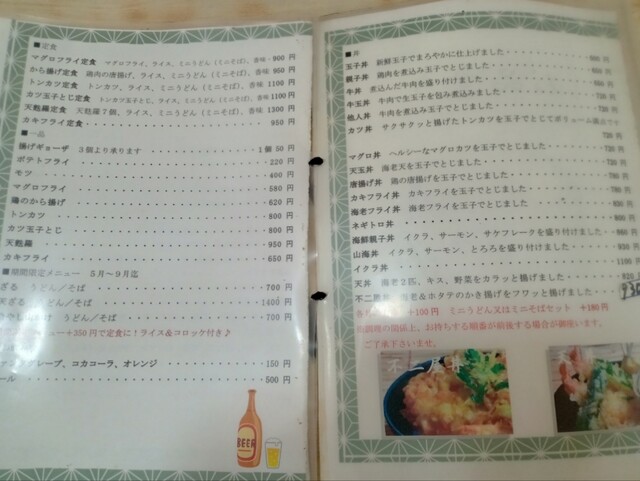 ■定食
マグロフライ定食 マグロフライ、ライス、ミニうどん（ミニそば）、香味・900 円
から揚げ定食 鶏肉の唐揚げ、ライス、ミニうどん（ミニそば）、香味 950 円
トンカツ定食 トンカツ、ライス、ミニうどん（ミニそば）、香味 1100 円
カツ玉子とじ定食 トンカツ玉子とじ、ライス、ミニうどん（ミニそば）、香味 1100 円
天麩羅定食 天麩羅７個、ライス、ミニうどん（ミニそば）、香味 1300 円
カキフライ定食 950 円
■一品
揚げギョーザ 3個より承ります 1個 50 円
ポテトフライ 220 円
モツ 400 円
マグロフライ 580 円
鶏のから揚げ 620 円
トンカツ 800 円
カツ玉子とじ 800 円
天麩羅 950 円
カキフライ 650 円
■期間限定メニュー 5月～9月迄
ざる うどん／そば 700 円
天ざる うどん／そば 1400 円
うどん／そば 700 円
ュー＋350円で定食に！ライス＆コロッケ付き♪
グレープ、コカコーラ、オレンジ 150 円
ール 500 円
BEER
■丼
玉子丼 新鮮玉子でまろやかに仕上げました
親子丼 鶏肉を煮込み玉子でとじました
牛丼 煮込んだ牛肉を盛り付けました
牛玉丼 牛肉で生玉子を包み煮込みました
他人丼 牛肉を煮込み玉子でとじました 720 円
カツ丼 サクサクッと揚げたトンカツを玉子でとじてボリューム満点です
マグロ丼 ヘルシーなマグロカツを玉子でとじました 720 円
天玉丼 海老天を玉子でとじました
唐揚げ丼 鶏の唐揚げを玉子でとじました
カキフライ丼 カキフライを玉子でとじました
海老フライ丼 海老フライを玉子でとじました
ネギトロ丼
海鮮親子丼 イクラ、サーモン、サケフレークを盛り付けました
山海丼 イクラ、サーモン、とろろを盛り付けました
イクラ丼 1100 円
天丼 海老２匹、キス、野菜をカラッと揚げました
不二屋丼 海老＆ホタテのかき揚げをフワッと揚げました 930
＋100円 ミニうどん又はミニそばセット ＋180円
調理の関係上、お持ちする順番が前後する場合が御座います。
ご了承下さいませ。
不二屋丼